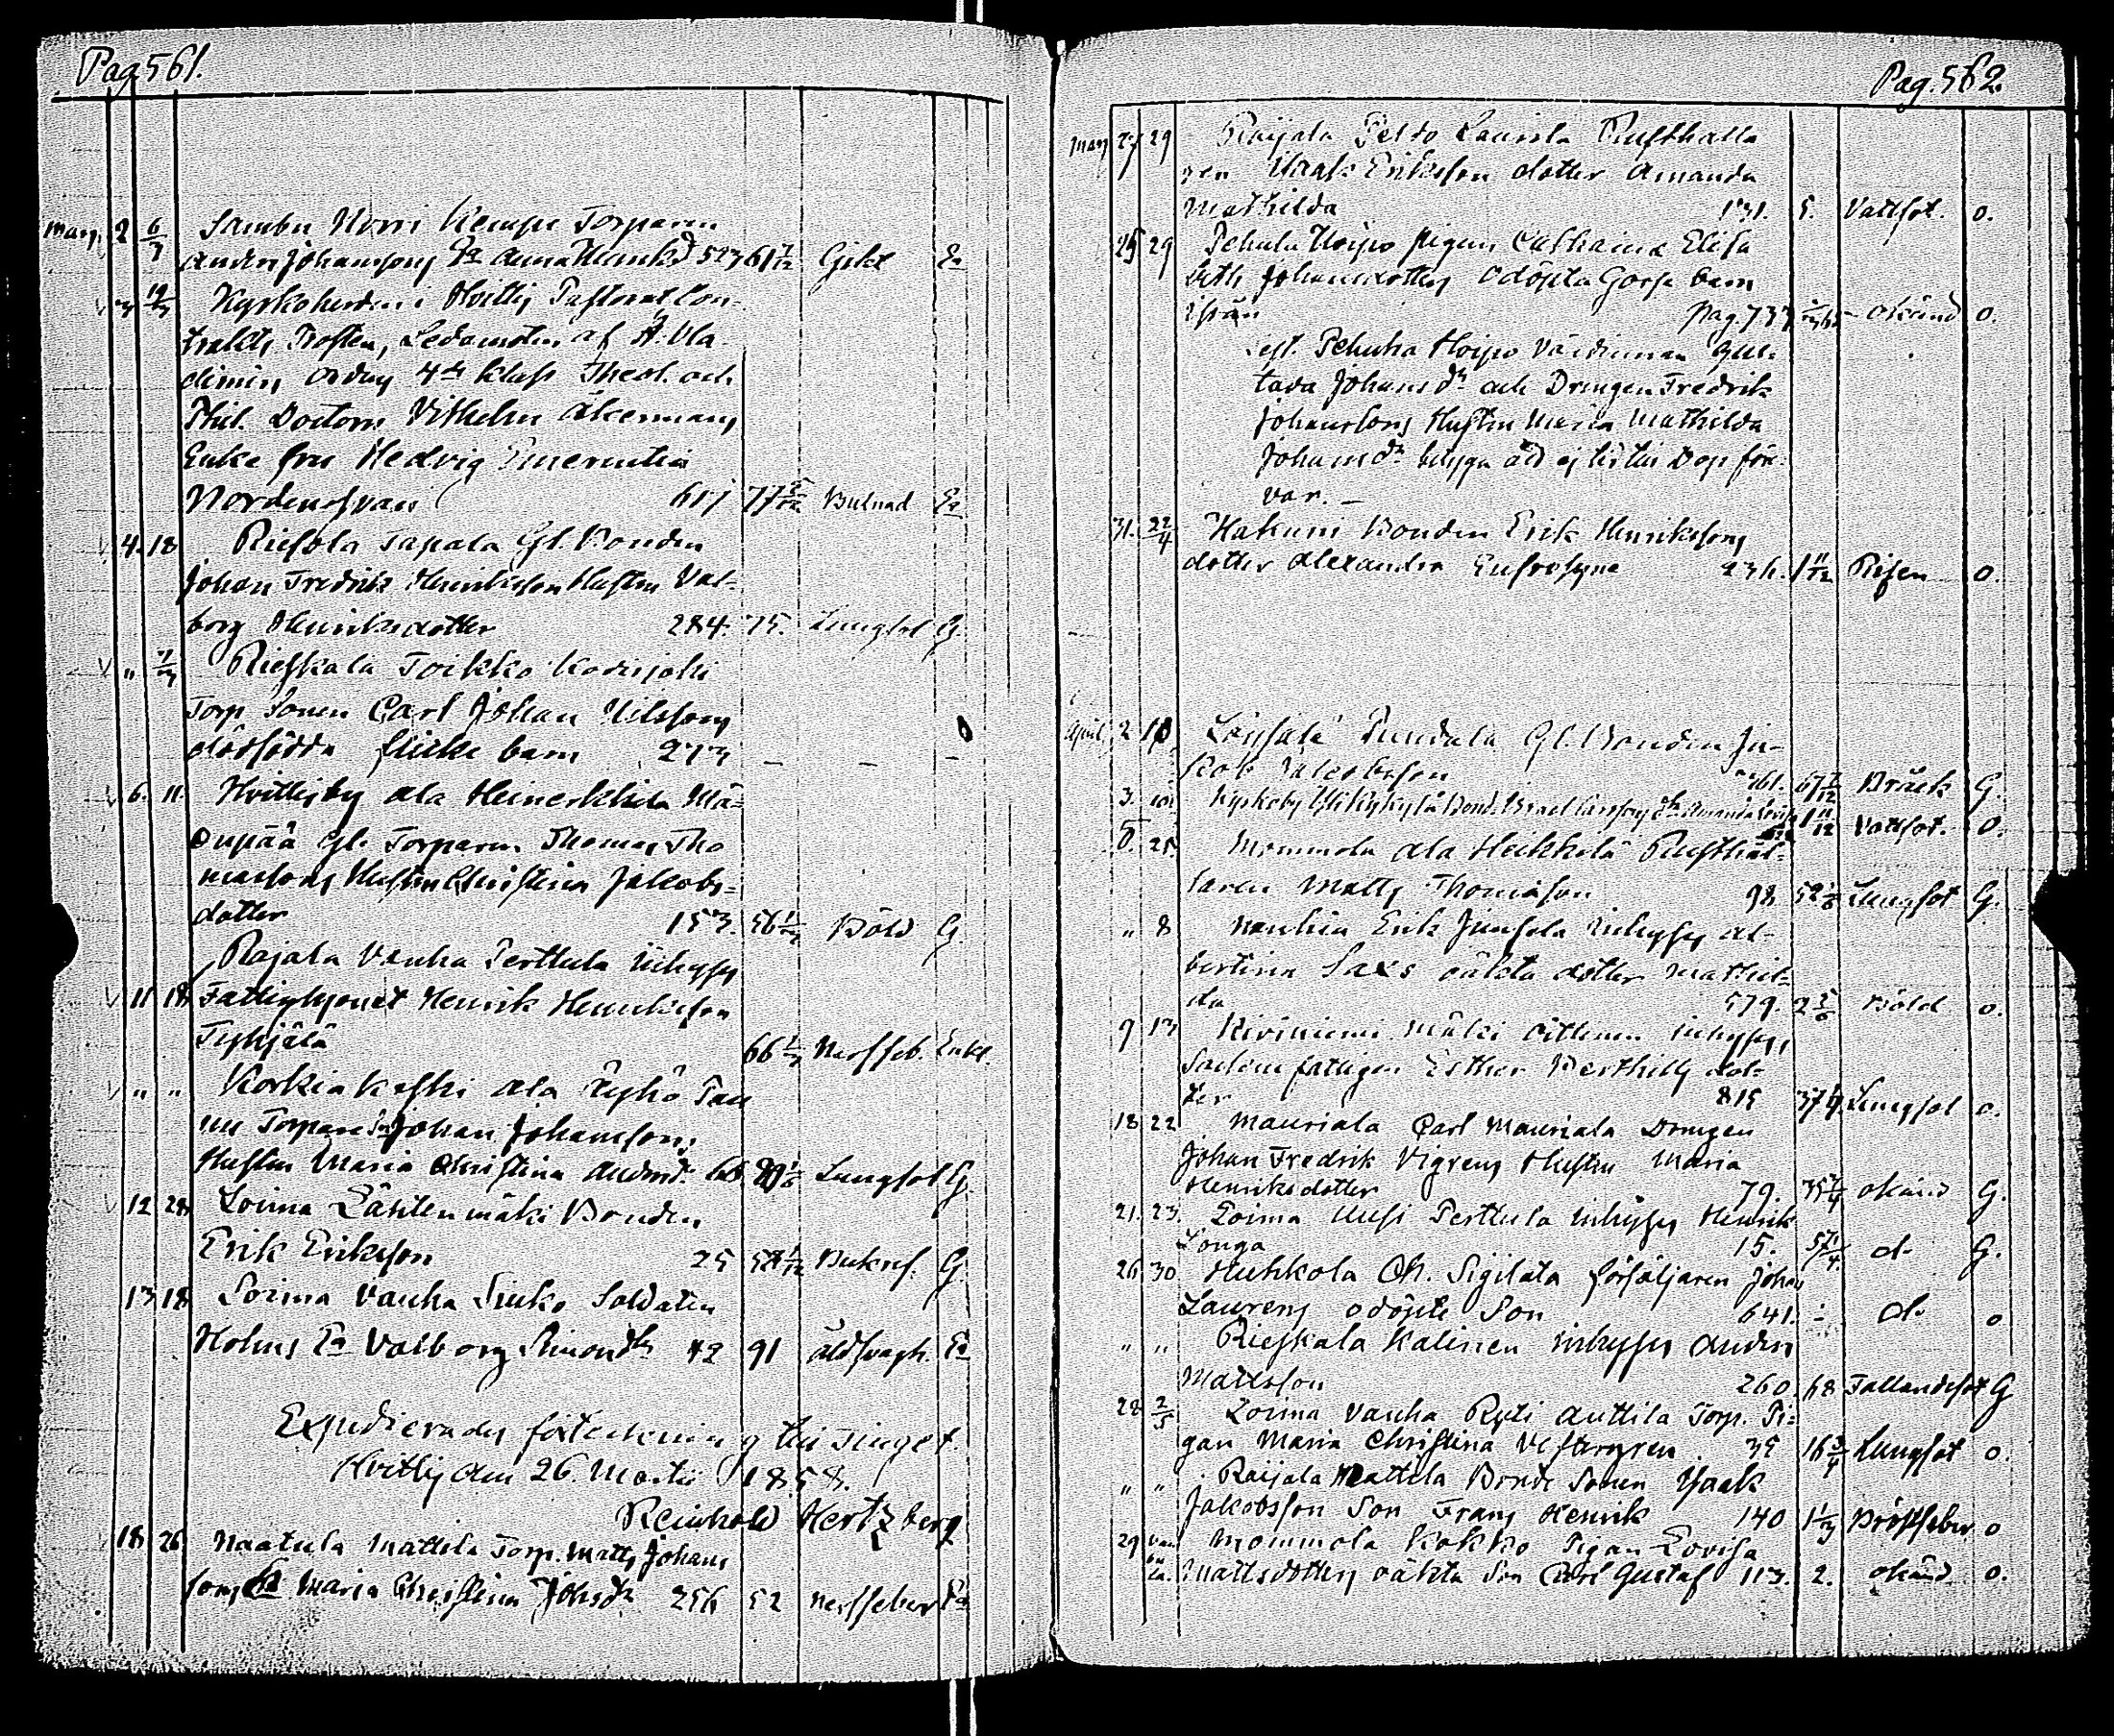 Pag. 561.
Mars 2 6/3 Sambu Norri Kempe Torparen
Anders Johanssons Ea Anna Henriksdr 523 61 7/12 Gikt Ea
3 19/3 Kyrkoherden i Hvittis Pastorat Con-
trakts Prosten, Ledamoten af St. Vla-
dimirs Orden 4de Klass Theol. och
Phil. Doctorn Vilhelm Åkermans
Enka fru Hedvig Emerentia
Nordensvan 617 77 5/12 Bulnad Ea
4. 18 Riesola Tapala Gl. Bonden
Johan Fredrik Henriksson Hustru Val-
borg Henriksdotter 284. 75. Lungsot G.
" Rieskala Toikko Kodisjoki
Torp. Sonen Carl Johan Nilssons
dödfödda flicke barn 273 — — —
6. 11. Hvittisby Ala Heinerkkilä Mä-
enpää Gl. Torparen Thomas Tho
massons Hustru Christina Jakobs-
dotter 153. 56 1/2 Böld G.
Rajala Vanha Perttula Inhyses
11 18 Fattighjonet Henrik Henriksson
Tyhjälä 66 1/2 Nerffeb. Enkl.
" " Korkiakoski Ala Ryhö Pau
nu Torpare Son Johan Johanssons
Hustru Maria Christina Andersdr. Lungsot G.
12 28 Loima Lähtenmäki Bonden
Erik Eriksson 25 58 1/12 Bukref. G.
13 18 Loima Vanha Sinko Soldaten
Holms Ea Valborg Simonsdr 42 91 åldsvagh. Ea
Expedierades förteckning till Tinget.
Hvittis den 26. Martii 1858.
Reinhold Hertzberg
18 26 Naatula Mattila Torp. Matts Johans
sons Ea Maria Christina Johsdr 256 52 Nerffeber Ea
Pag. 562.
Mars 27 29 Raijala Peldo Laurila Rusthålla
ren Isaak Eriksson dotter Amanda
Mathilda 131. 5. Vattsot. o.
25 29 Pehula Hoipo Pigan Catharina Elisa
beth Johansdotters odöpta Gosse barn
Pag. 733 — okänd o.
Pehula Hoipo Värdinnan Gus-
tava Johansdr och Drängen Fredrik
Johanssons Hustru Maria Mathilda
Johansdr
var. —
31. 22/4 Hakuni Bonden Erik Henrikssons
dotter Alexandra Eufrosyne 236. 1 11/12 Risen o.
April 2 10 Löysälä Pundala Gl. Bonden Ja-
kob Jakobsson 161. 67 7/12 Bråck G.
3. 10. Kyrkoby Yli Kyky Bond. Israel Carssons dr Amanda Lovisa 1 11/12 Vattsot. o.
5. 25. Mommola Ala Heikkilä Rusthål-
laren Matts Thomasson 98 52 1/6 Lungsot G.
" 8 Nanhia Erik Junsola Inhyses Al-
bertina Saxs oäkta dotter Mathil-
da 579. 2 5/6 Böld o.
9 13 Kiviniemi Mäki Inhyses
Socknefattigen Esther Berthills dot-
ter 815 Lungsot o.
18 22 Mauriala Carl Mauriala Drängen
Johan Fredrik Vigrens Hustru Maria
Henriksdotter 79. 35 3/4 okänd G.
21. 23. Loima Uusi Perttula Inhyses Henrik
Longa 15. 57 1/4 d: G.
26 30 Huhkola Ch. Sigilata försäljaren Johan
Laurens odöpte Son 641. – d: o
" " Rieskala Kalinen Inhyses Anders
Mattsson 260. 68 Fallandesot G
28 2/5 Loima Vanha Ryti Anttila Torp. Pi-
gan Maria Christina Vestergren 35 16 3/4 Lungsot o.
" " Raijala Mattila Bonde Sonen Isaak
Jakobsson Son Frans Henrik 140 1 1/3 Bröstfeber o
29 Mommola Kokko Pigan Lovisa
Mattsdotters oäkta Son Carl Gustaf 113. 2. okänd o.